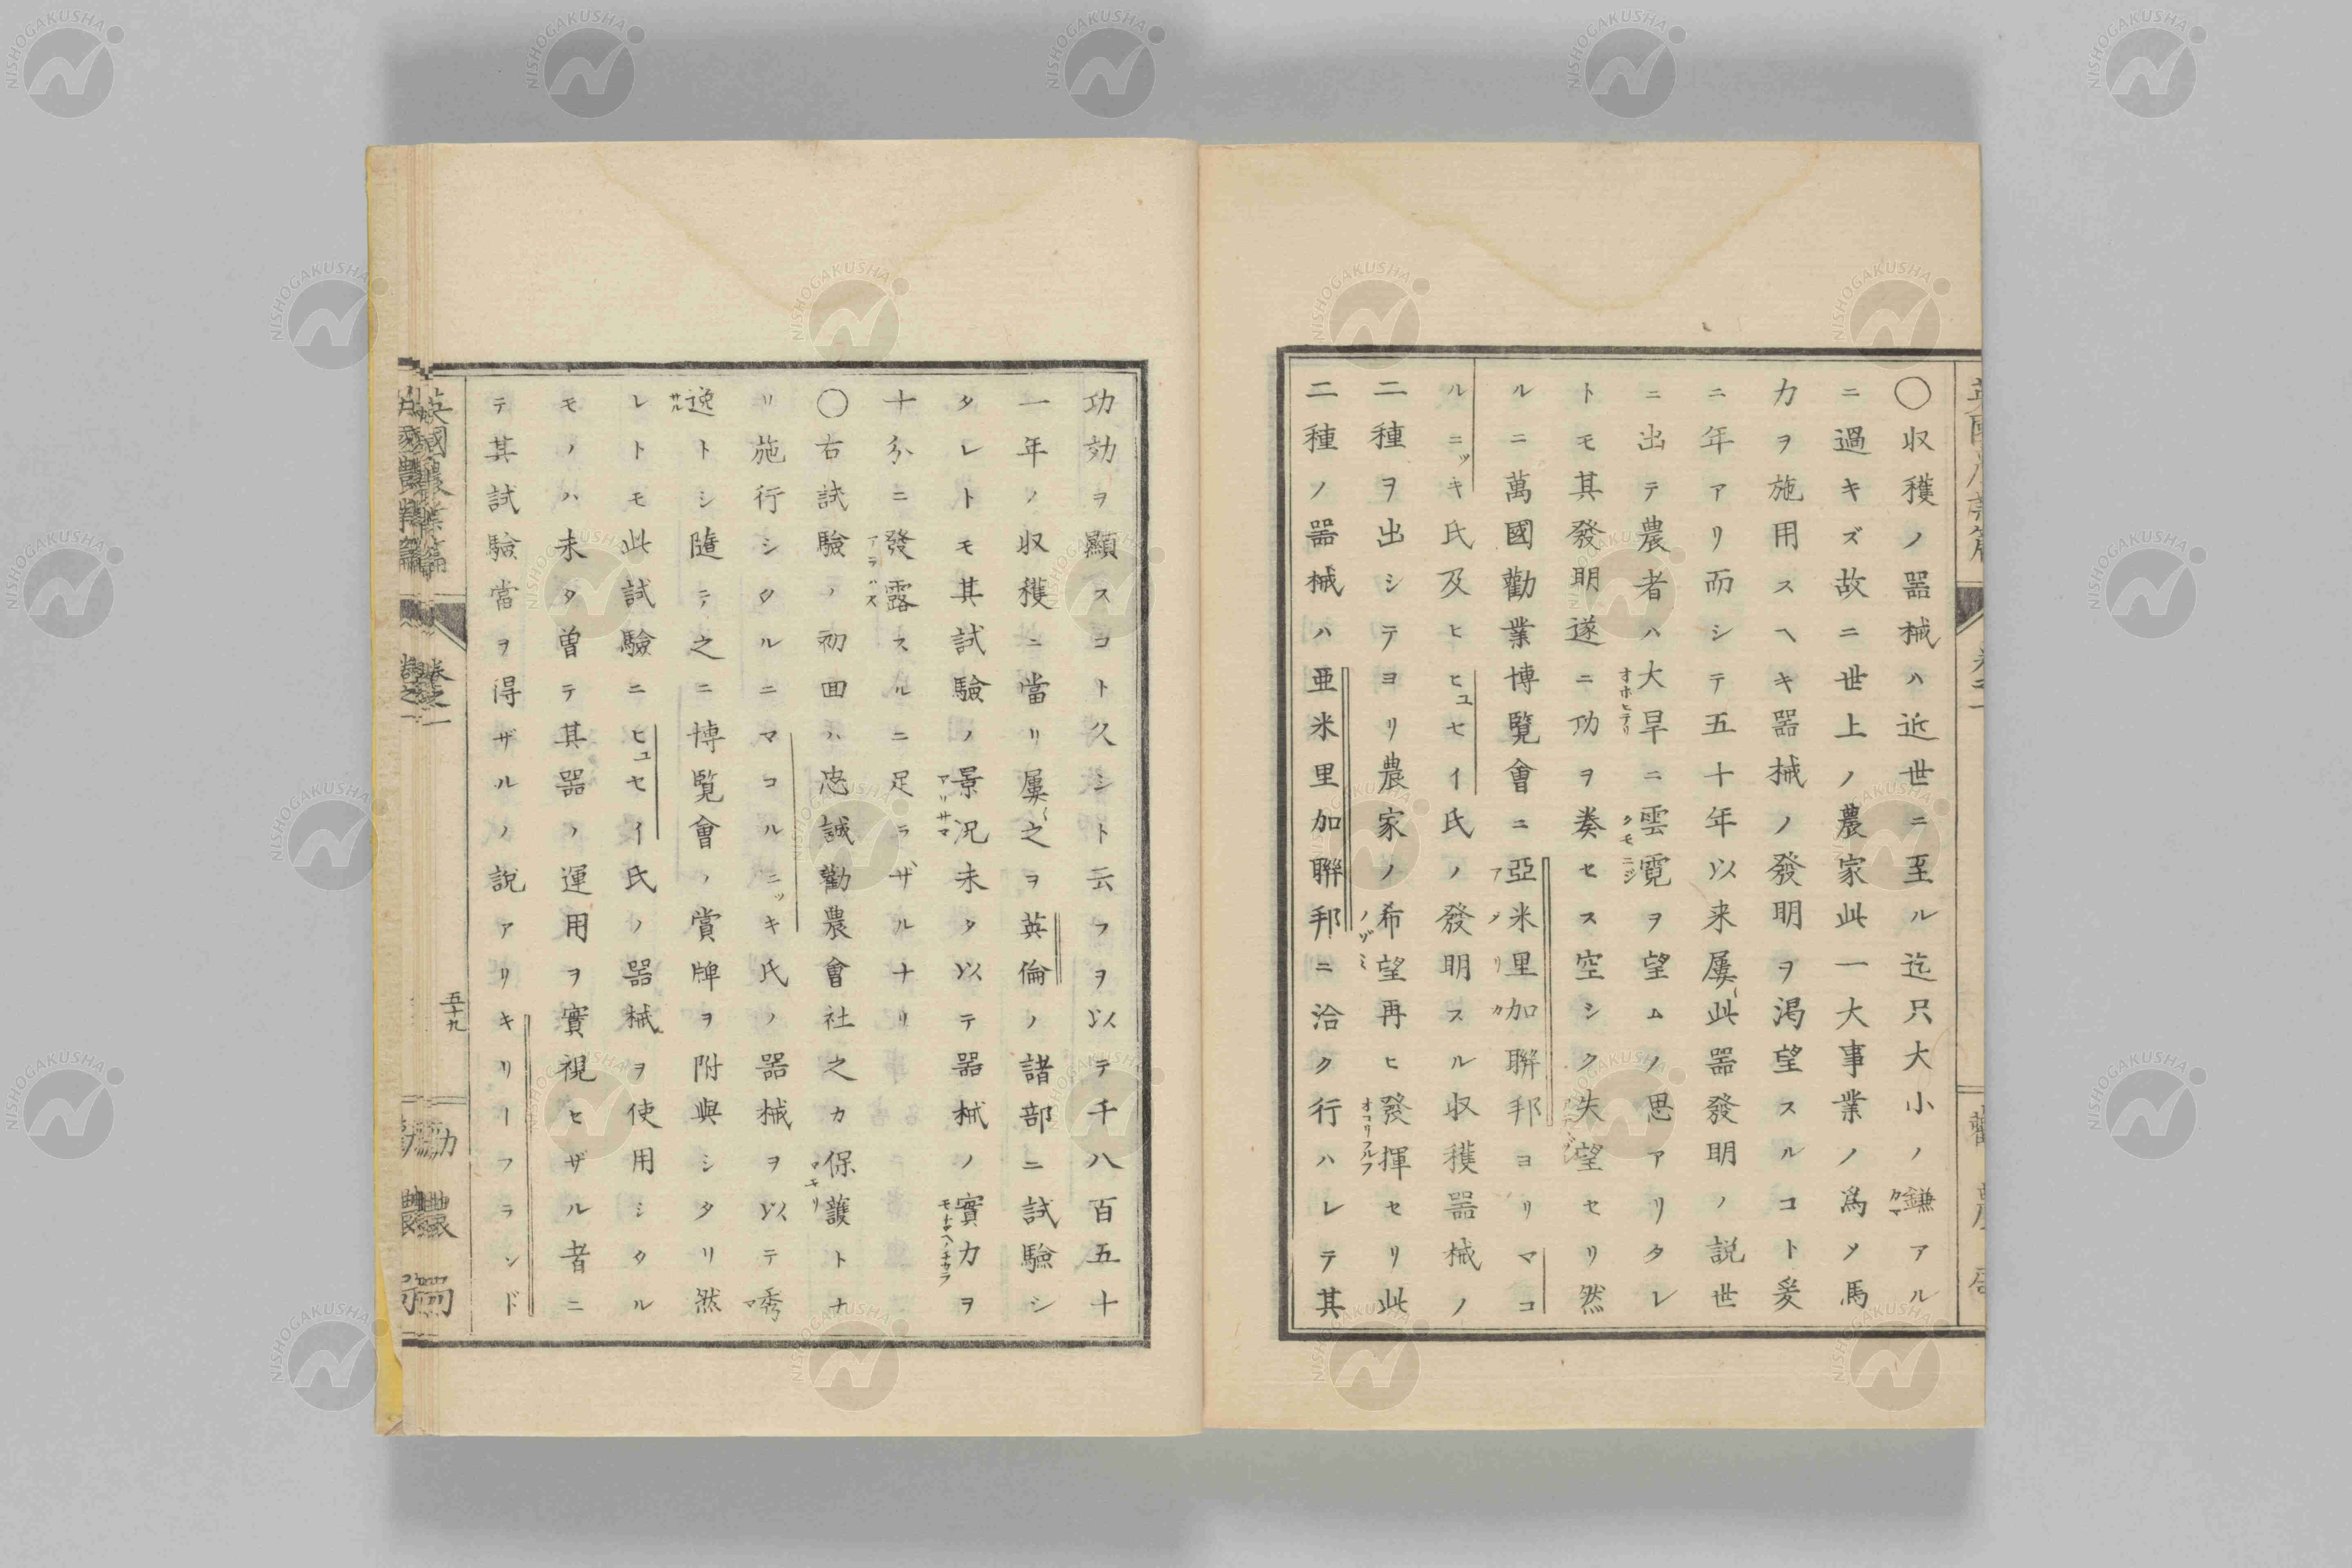 〇収穫ノ器械ハ近世ニ至ル迄只大小ノ鎌アル
ニ過キズ故ニ世上ノ農家此一大事業ノ爲メ馬
力ヲ施用スヘキ器械ノ發明ヲ渇望スルコト爰
ニ年アリ而シテ五十年以来屢〻此器發明ノ説世
ニ出テ農者ハ大旱ニ雲霓ヲ望ムノ思アリタレ
トモ其發明遂ニ功ヲ奏セス空シク失望セリ然
ルニ萬國勸業博覧會ニ亞米里加聯邦ヨリマコ
ルニッキ氏及ヒヒュセイ氏ノ發明スル収穫器械ノ
二種ヲ出シテヨリ農家ノ希望再ヒ發揮セリ此
二種ノ器械ハ亜米里加聯邦ニ洽ク行ハレテ其
功効ヲ顯スコト久シト云フヲ以テ千八百五十
一年ノ収穫ニ當リ屢〻之ヲ英倫ノ諸部ニ試驗シ
タレトモ其試驗ノ景况未タ以テ器械ノ實力ヲ
十分ニ發露スルニ足ラザルナリ
〇右試驗ノ初回ハ忠誠勸農會社之カ保護トナ
リ施行シタルニマコルニッキ氏ノ器械ヲ以テ秀
逸トシ隨テ之ニ博覧會ノ賞牌ヲ附與シタリ然
レトモ此試驗ニヒュセイ氏ノ器械ヲ使用シタル
モノハ未タ曽テ其器ノ運用ヲ實視セザル者ニ
テ其試驗當ヲ得ザルノ説アリキリーフランド
英國農業篇 卷之一 五十九 勸農局